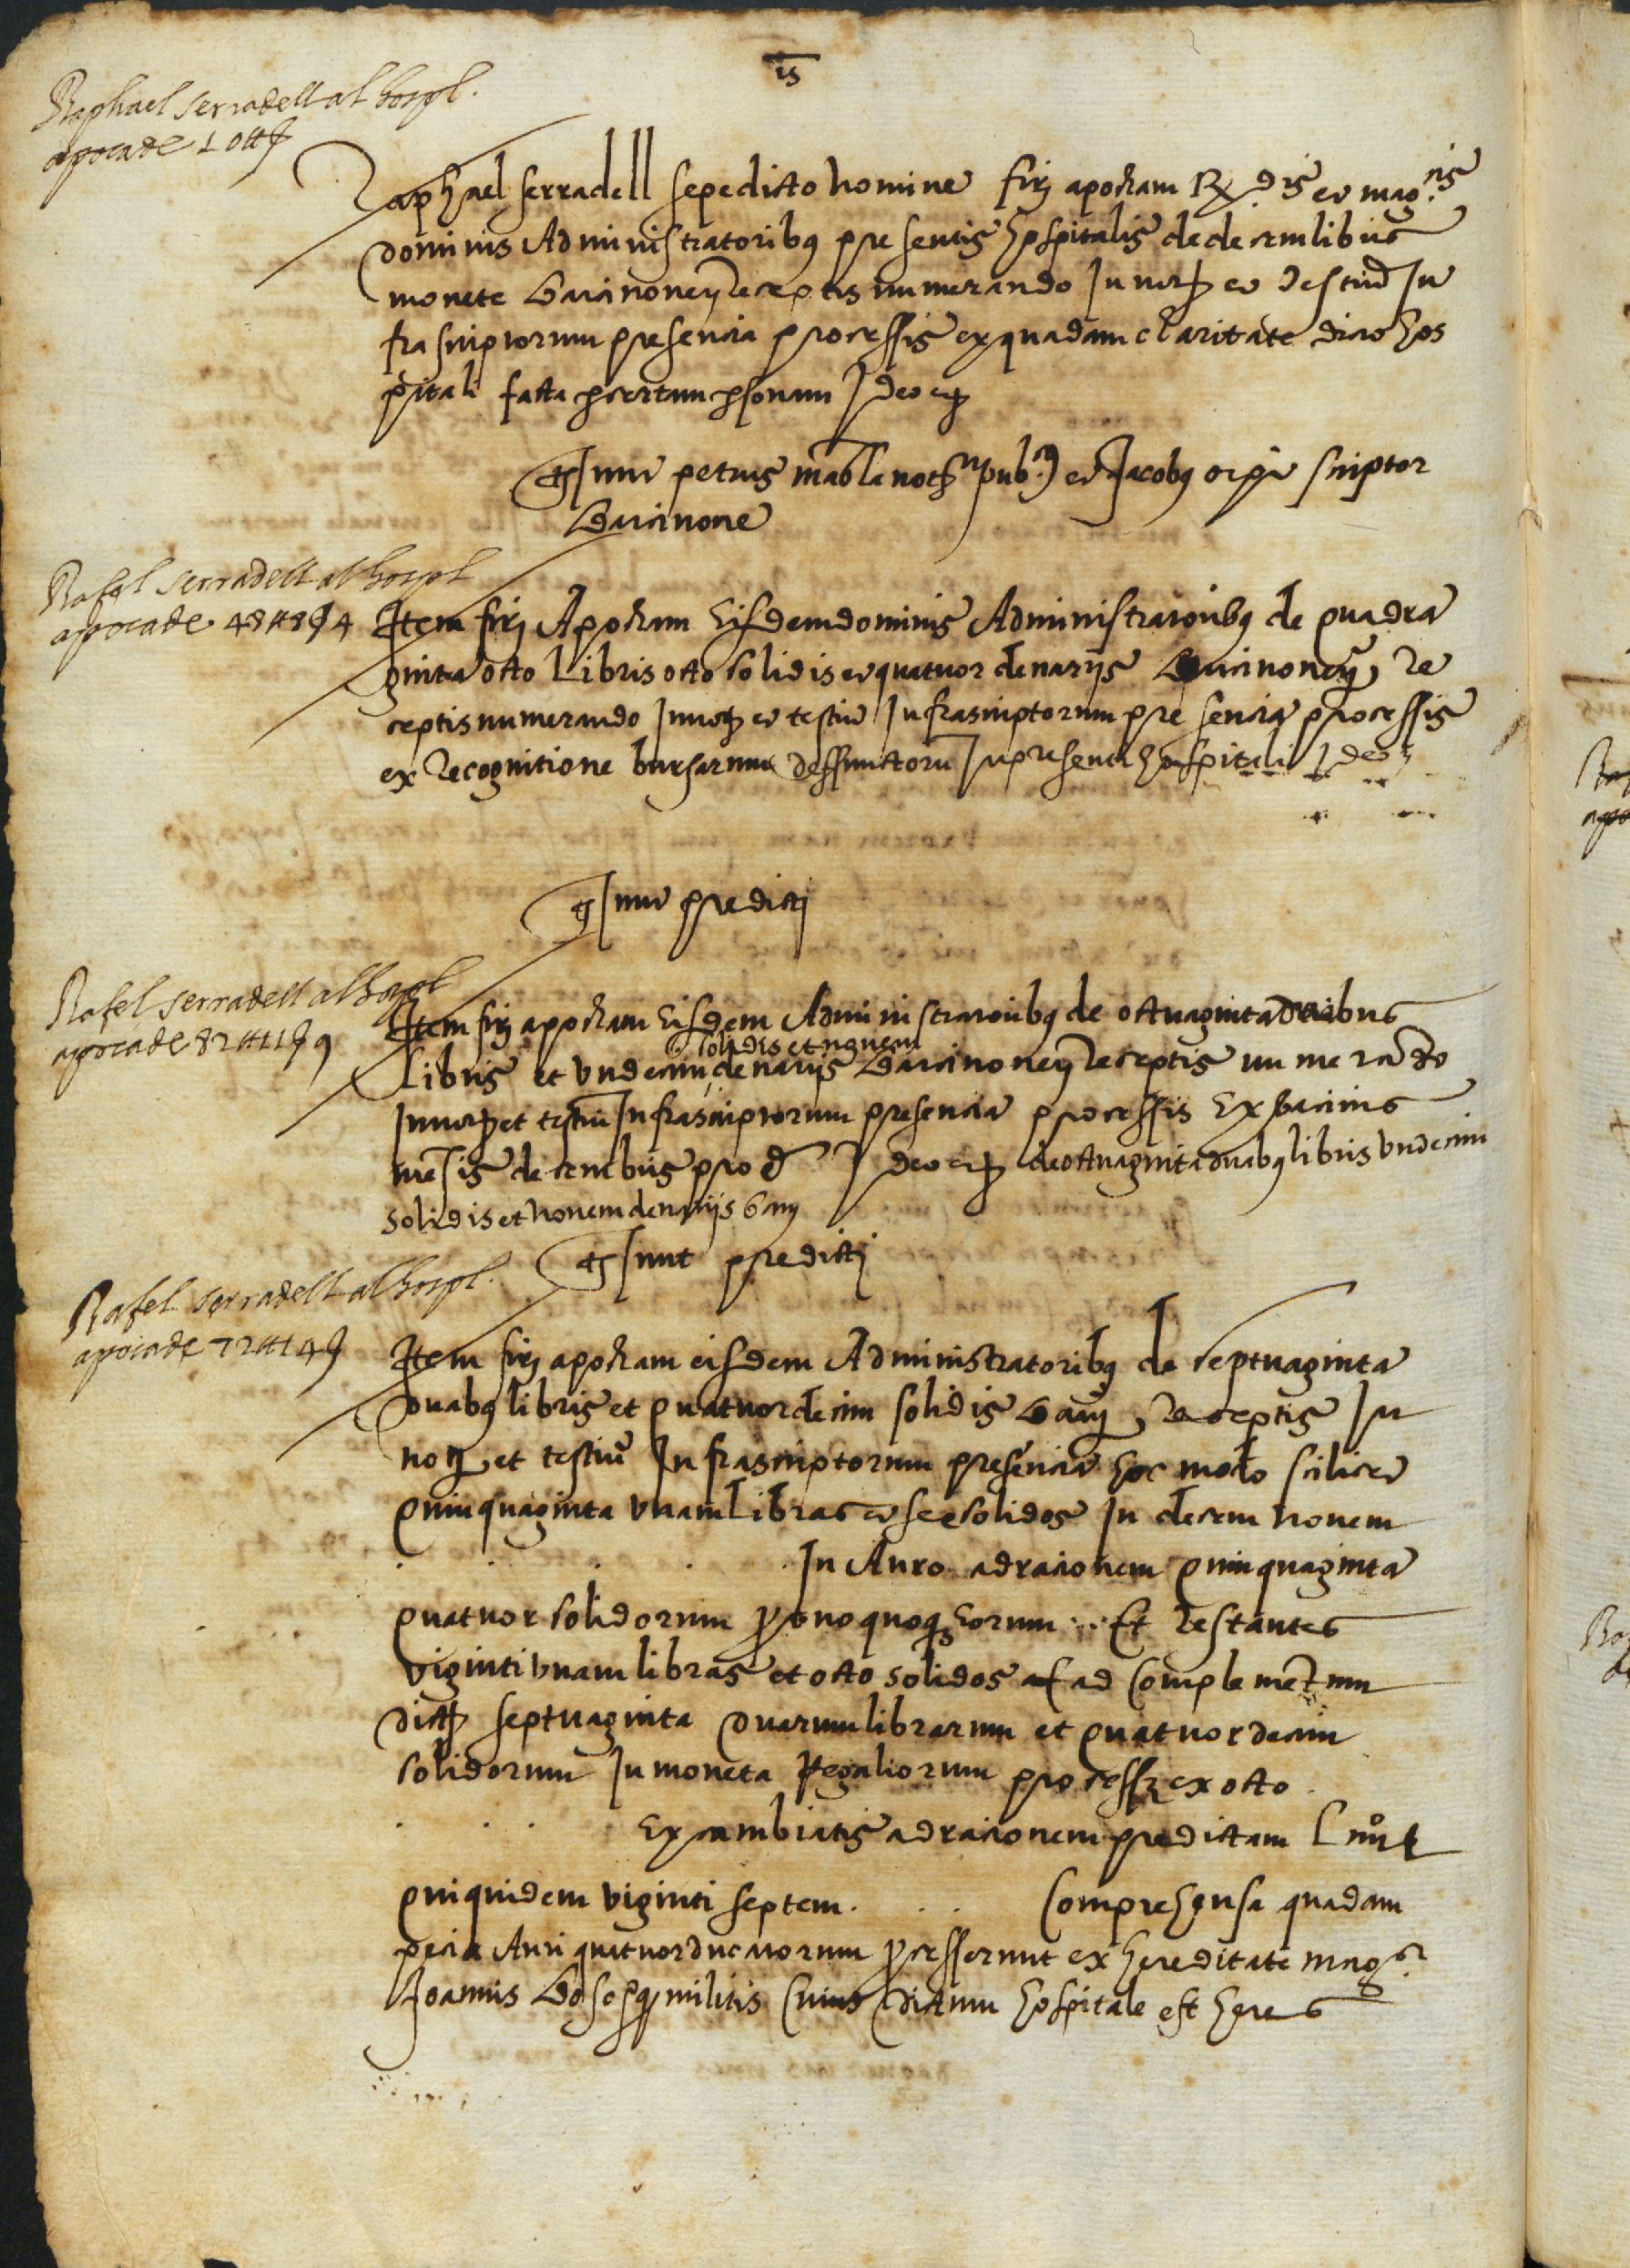 Raphael serradell al hospl.
apoca de 10 tt ſ
Raphael serradell sepedicto nomine firj apocham Rx.dis et mag.cis
dominis Administratoribus presentis hospitalis de decem libris
monete Barcinonen receptis numerando In not et testiu In
frascriptorum presencia processis ex quadam charitate dicto hos
pitali facta per certam personam Ideo etc
Tes sunt petrus mabla not pub. et Jacobus scriptor
Barcinone
Rafel serradell al hospl
apoca de 48 tt 8 ſ 4
Item firj Apocham Eisdem dominis Administratoribus de quadra
ginta octo Libris octo solidis et quatuor denarijs Barcinonen re
ceptis numerando In not et testiu Infrascriptorum presencia processis
ex recognitione bursarum deffunctoru In presenti hospitali Ideo
Tes sunt predictj
Rafel serradell al hospl
apoca de 82 tt 11 ſ 9
Item firj apocham Eisdem Administratoribus de octuaginta duabus
solidis et novem
Libris et undecim denarijs Barcinonen receptis numerando
In not et testiu Infrascriptorum presencia processis Ex bacinis
mensis decembris pro d Ideo etc de octuaginta duabus libris undecim
solidis et novem denarijs bar
Tes sunt predictj
Rafel serradell al hospl.
apoca de 72 tt 14 ſ
Item firj apocham eisdem Administratoribus de septuaginta
duabus libris et quatuordecim solidis Bar receptis In
not et testiu Infrascriptorum presencia hoc modo scilicet
quinquaginta unam Libras et sex solidos In decem novem
In Auro ad racionem quinquaginta
quatuor solidorum pro unoquoque Eorum Et restantes
viginti unam libras et octo solidos ad Complementum
dict septuaginta duarum librarum et quatuordecim
solidorum In moneta Regaliorum process ex octo
Excambiatis ad racionem predictam
qui quidem viginti septem Comprehensa quadam
pecia Auri quatuor ducatorum processerunt ex hereditate mag.
Joannis militis Cuius dictum hospitale est heres